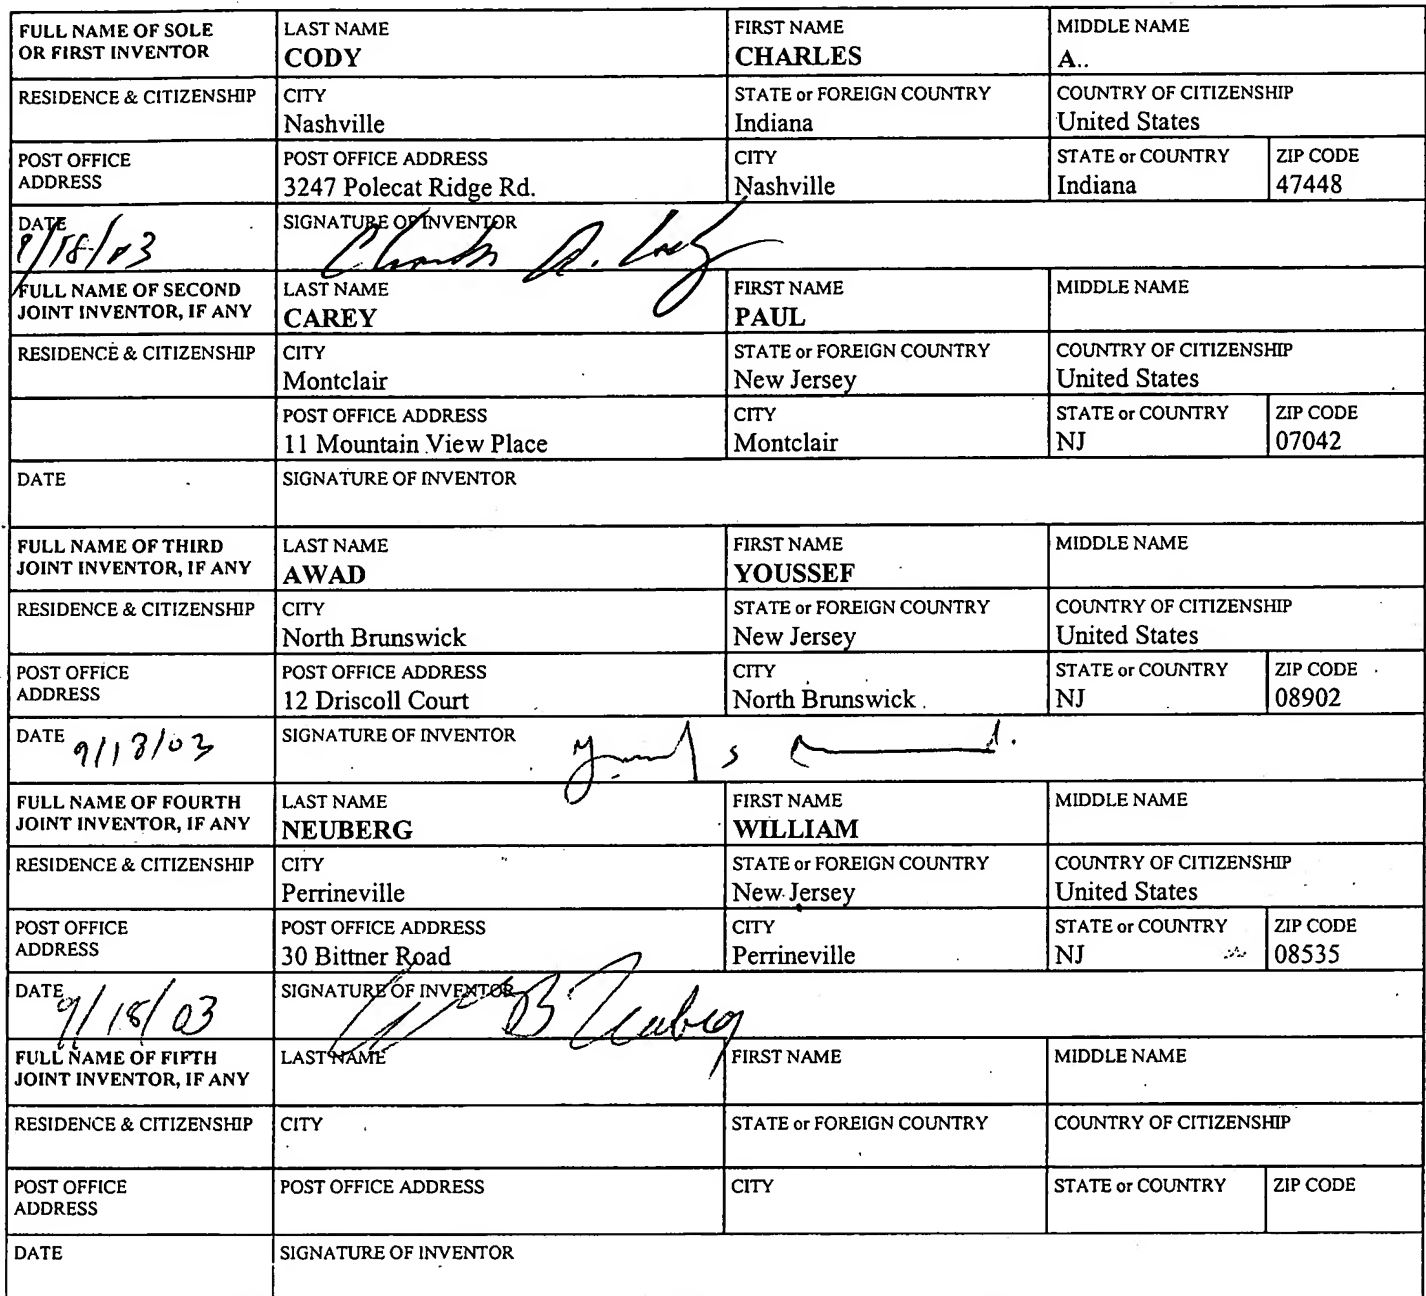 FULL NAME OF SOLE OR FIRST INVENTOR LAST NAME CODY FIRST NAME CHARLES MIDDLE NAME A..
RESIDENCE & CITIZENSHIP CITY Nashville STATE or FOREIGN COUNTRY Indiana COUNTRY OF CITIZENSHIP United States
POST OFFICE ADDRESS POST OFFICE ADDRESS 3247 Polecat Ridge Rd. CITY Nashville STATE or COUNTRY Indiana ZIP CODE 47448
DATE 9/18/03 SIGNATURE OF INVENTOR Charles A. Cody
FULL NAME OF SECOND JOINT INVENTOR, IF ANY LAST NAME CAREY FIRST NAME PAUL MIDDLE NAME
RESIDENCE & CITIZENSHIP CITY Montclair STATE or FOREIGN COUNTRY New Jersey COUNTRY OF CITIZENSHIP United States
POST OFFICE ADDRESS 11 Mountain View Place CITY Montclair STATE or COUNTRY NJ ZIP CODE 07042
DATE SIGNATURE OF INVENTOR
FULL NAME OF THIRD JOINT INVENTOR, IF ANY LAST NAME AWAD FIRST NAME YOUSSEF MIDDLE NAME
RESIDENCE & CITIZENSHIP CITY North Brunswick STATE or FOREIGN COUNTRY New Jersey COUNTRY OF CITIZENSHIP United States
POST OFFICE ADDRESS POST OFFICE ADDRESS 12 Driscoll Court CITY North Brunswick STATE or COUNTRY NJ ZIP CODE 08902
DATE 9/18/03 SIGNATURE OF INVENTOR
FULL NAME OF FOURTH JOINT INVENTOR, IF ANY LAST NAME NEUBERG FIRST NAME WILLIAM MIDDLE NAME
RESIDENCE & CITIZENSHIP CITY Perrineville STATE or FOREIGN COUNTRY New Jersey COUNTRY OF CITIZENSHIP United States
POST OFFICE ADDRESS POST OFFICE ADDRESS 30 Bittner Road CITY Perrineville STATE or COUNTRY NJ ZIP CODE 08535
DATE 9/18/03 SIGNATURE OF INVENTOR Wm B Neuberg
FULL NAME OF FIFTH JOINT INVENTOR, IF ANY LAST NAME FIRST NAME MIDDLE NAME
RESIDENCE & CITIZENSHIP CITY STATE or FOREIGN COUNTRY COUNTRY OF CITIZENSHIP
POST OFFICE ADDRESS POST OFFICE ADDRESS CITY STATE or COUNTRY ZIP CODE
DATE SIGNATURE OF INVENTOR